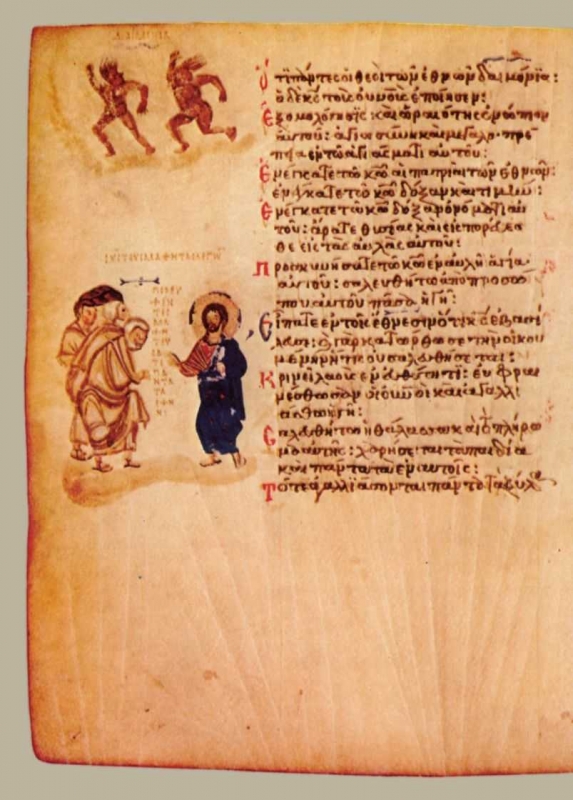 Ὅτι πάντες οἱ θεοὶ τῶν ἐθνῶν δαιμόνια:
ὁ δὲ κς τοὺς οὐνοὺς ἐποίησεν:
Ἐξομολόγησις καὶ ὡραιότης ἐνώπιον
αὐτοῦ: ἁγιωσύνη καὶ μεγαλοπρέ
πεια ἐν τῶ ἁγιάσματι αὐτοῦ:
Ἐνέγκατε τῶ κω αἱ πατριαὶ τῶν ἐθνῶν:
ἐνέγκατε τῶ κω δόξαν καὶ τιμήν:
Ἐνέγκατε τῶ κω δόξαν ὀνόματι αὐ
τοῦ: ἄρατε θυσίας καὶ εἰσπορεύεσ
θε εἰς τὰς αὐλὰς αὐτοῦ:
Προσκυνήσατε τῶ κω ἐν αὐλῆ ἁγία
αὐτοῦ: σαλευθήτω ἀπὸ προσώ
που αὐτοῦ πᾶσα ἡ γῆ:
Εἴπατε ἐν τοῖς ἔθνεσιν ὅτι κς ἐβασί
λευσεν: γὰρ κατόρθωσε τὴν οἰκου
μένην ἥτις οὐ σαλευθήσεται:
Κρινεῖ λαοὺς ἐν εὐθύτητι: εὐφραι
νέσθωσαν οἱ οὐνοὶ καὶ ἀγαλλι
άσθω ἡ γῆ:
Σαλευθήτω ἡ θάλασσα καὶ τὸ πλήρω
μα αὐτῆς: χαρήσεται τὰ παιδία
καὶ πάντα τὰ ἐν αὐτοῖς:
Τότε ἀγαλλιάσονται πάντα τὰ ξύλ